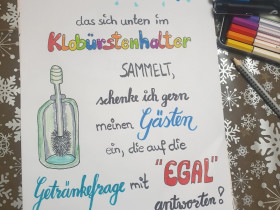 das sich unten im
Klobürstenhalter
SAMMELT,
schenke ich gern
meinen Gästen
ein, die auf die
Getränkefrage mit "EGAL"
antworten!